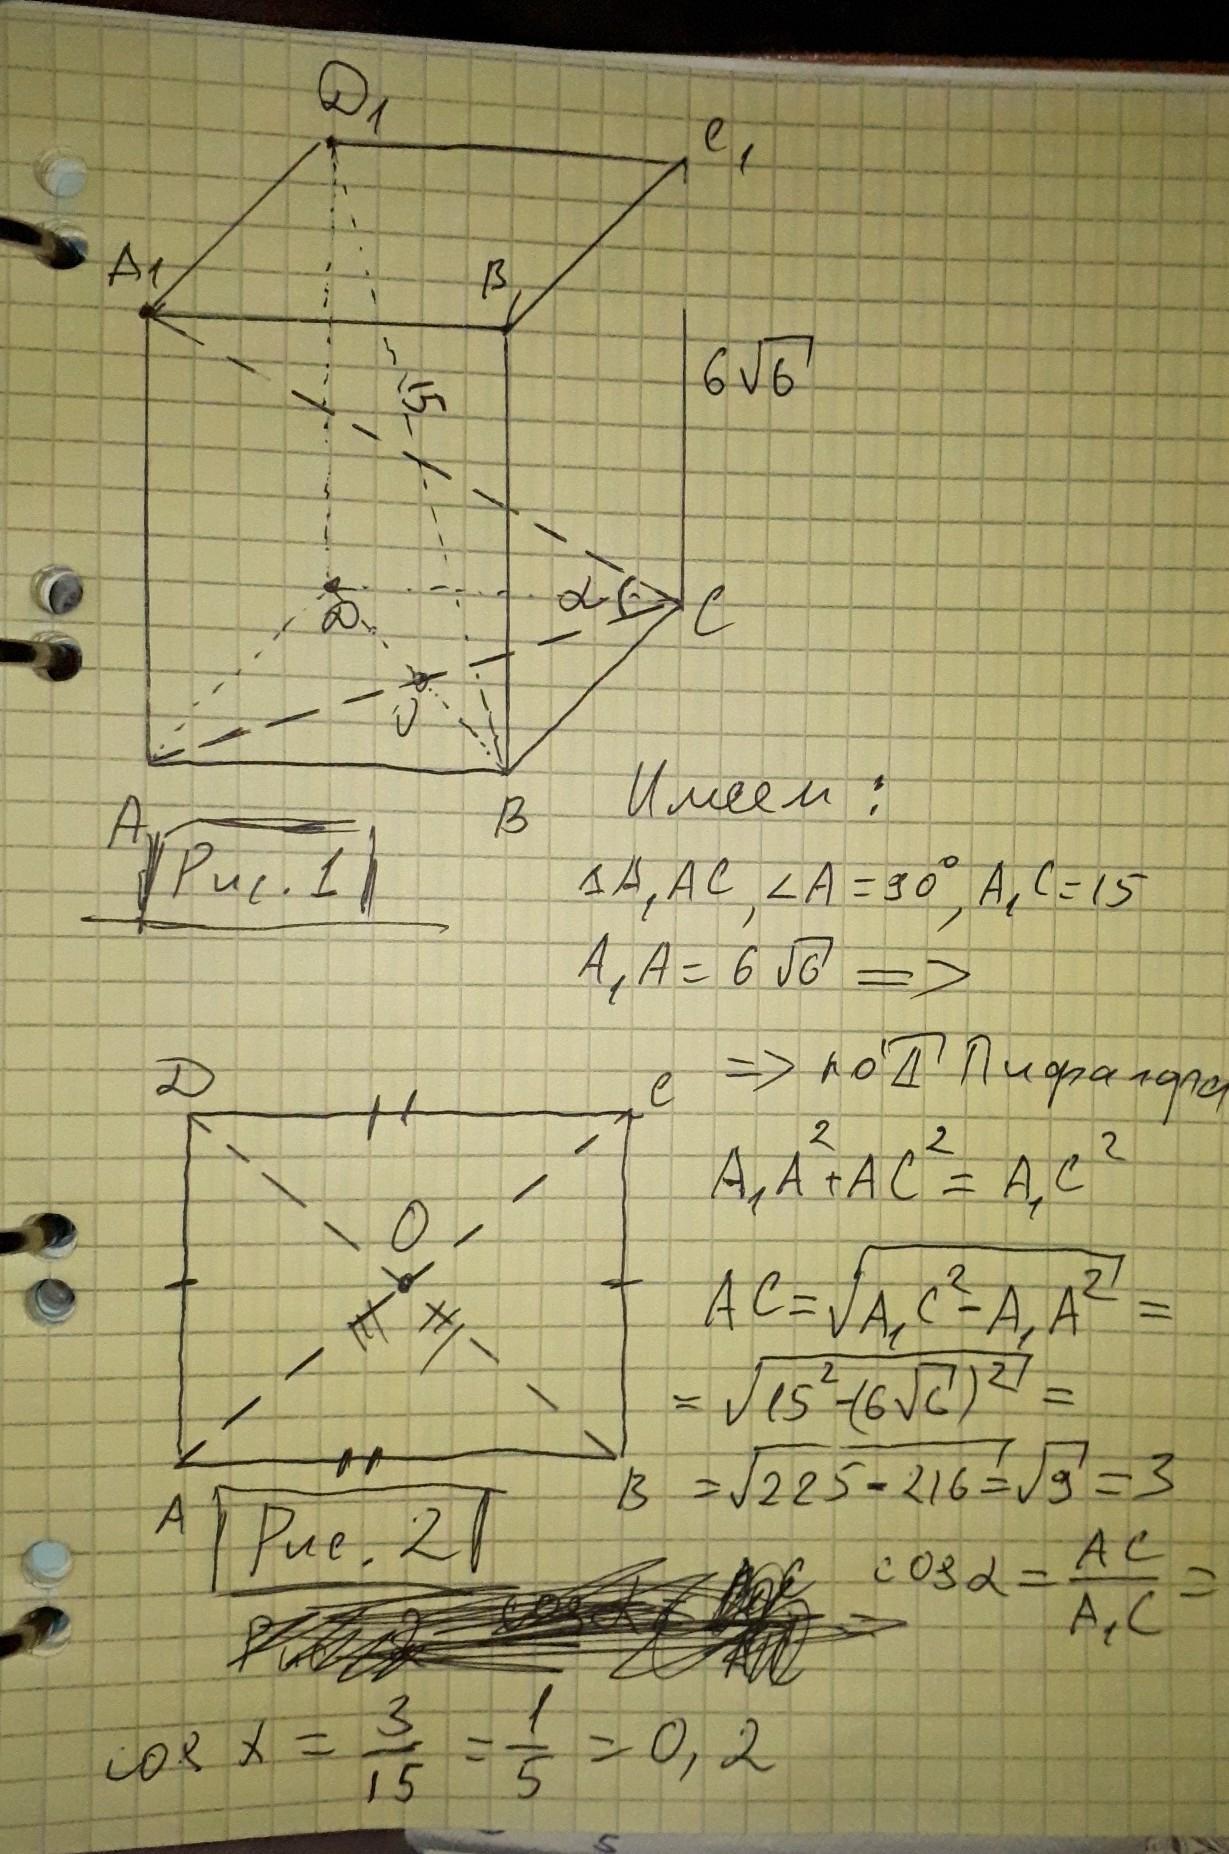 D1
C1
A1
B1
6√6
15
α
D
C
O
A
B
Рис. 1
Имеем:
ΔA1AC, ∠A = 90°, A1C = 15
A1A = 6√6 =>
=> по Т Пифагора
D
C
A1A² + AC² = A1C²
O
AC = √(A1C² - A1A²) =
= √(15² - (6√6)²) =
A
B
= √(225 - 216) = √9 = 3
Рис. 2
cos α = AC/A1C =
cos x = 3/15 = 1/5 = 0,2